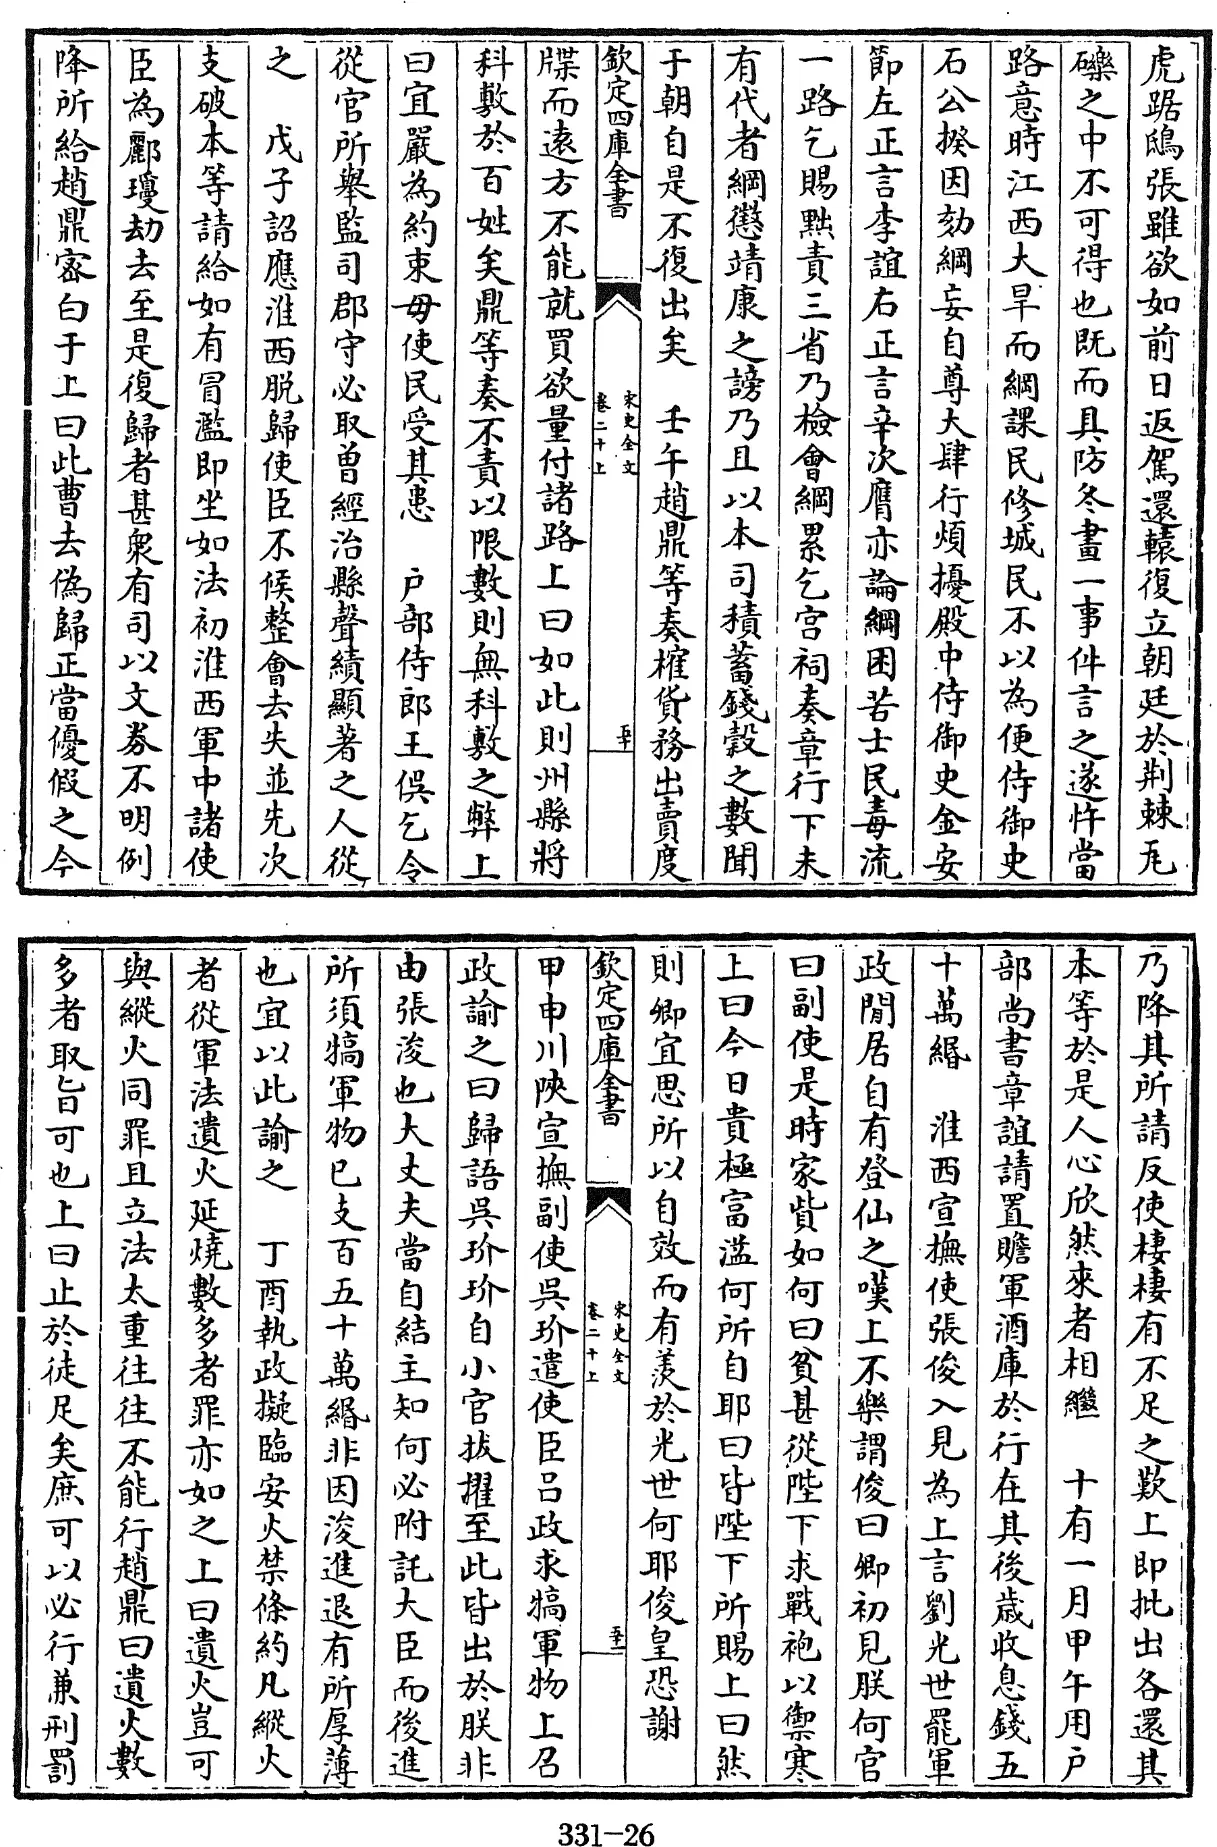 虎踞鴟張雖欲如前日返駕還轅復立朝廷於荆棘瓦
礫之中不可得也既而具防冬畫一事件言之遂忤當
路意時江西大旱而綱課民修城民不以為便侍御史
石公揆因劾綱妄自尊大肆行煩擾殿中侍御史金安
節左正言李誼右正言辛次膺亦論綱困苦士民毒流
一路乞賜黜責三省乃檢會綱累乞宮祠奏章行下未
有代者綱懲靖康之謗乃且以本司積蓄錢穀之數聞
于朝自是不復出矣　壬午趙鼎等奏榷貨務出賣度
欽定四庫全書
宋史全文
卷二十上
五十
牒而遠方不能就買欲量付諸路上曰如此則州縣將
科敷於百姓矣鼎等奏不責以限數則無科敷之弊上
曰宜嚴為約束毋使民受其患　户部侍郎王俁乞令
從官所舉監司郡守必取曾經治縣聲績顯著之人從
之　戊子詔應淮西脱歸使臣不候整會去失並先次
支破本等請給如有冒濫即坐如法初淮西軍中諸使
臣為酈瓊劫去至是復歸者甚衆有司以文劵不明例
降所給趙鼎密白于上曰此曹去偽歸正當優假之今
乃降其所請反使棲棲有不足之歎上即批出各還其
本等於是人心欣然來者相繼　十有一月甲午用户
部尚書章誼請置贍軍酒庫於行在其後歲收息錢五
十萬緡　淮西宣撫使張俊入見為上言劉光世罷軍
政閒居自有登仙之嘆上不樂謂俊曰卿初見朕何官
曰副使是時家貲如何曰貧甚從陛下求戰袍以禦寒
上曰今日貴極富溢何所自耶曰皆陛下所賜上曰然
則卿宜思所以自效而有羨於光世何耶俊皇恐謝
欽定四庫全書
宋史全文
卷二十上
五十一
甲申川陜宣撫副使吳玠遣使臣吕政求犒軍物上召
政諭之曰歸語吳玠玠自小官拔擢至此皆出於朕非
由張浚也大丈夫當自結主知何必附託大臣而後進
所須犒軍物已支百五十萬緡非因浚進退有所厚薄
也宜以此諭之　丁酉執政擬臨安火禁條約凡縱火
者從軍法遺火延燒數多者罪亦如之上曰遺火豈可
與縱火同罪且立法太重往往不能行趙鼎曰遺火數
多者取旨可也上曰止於徒足矣庶可以必行兼刑罰
331-26